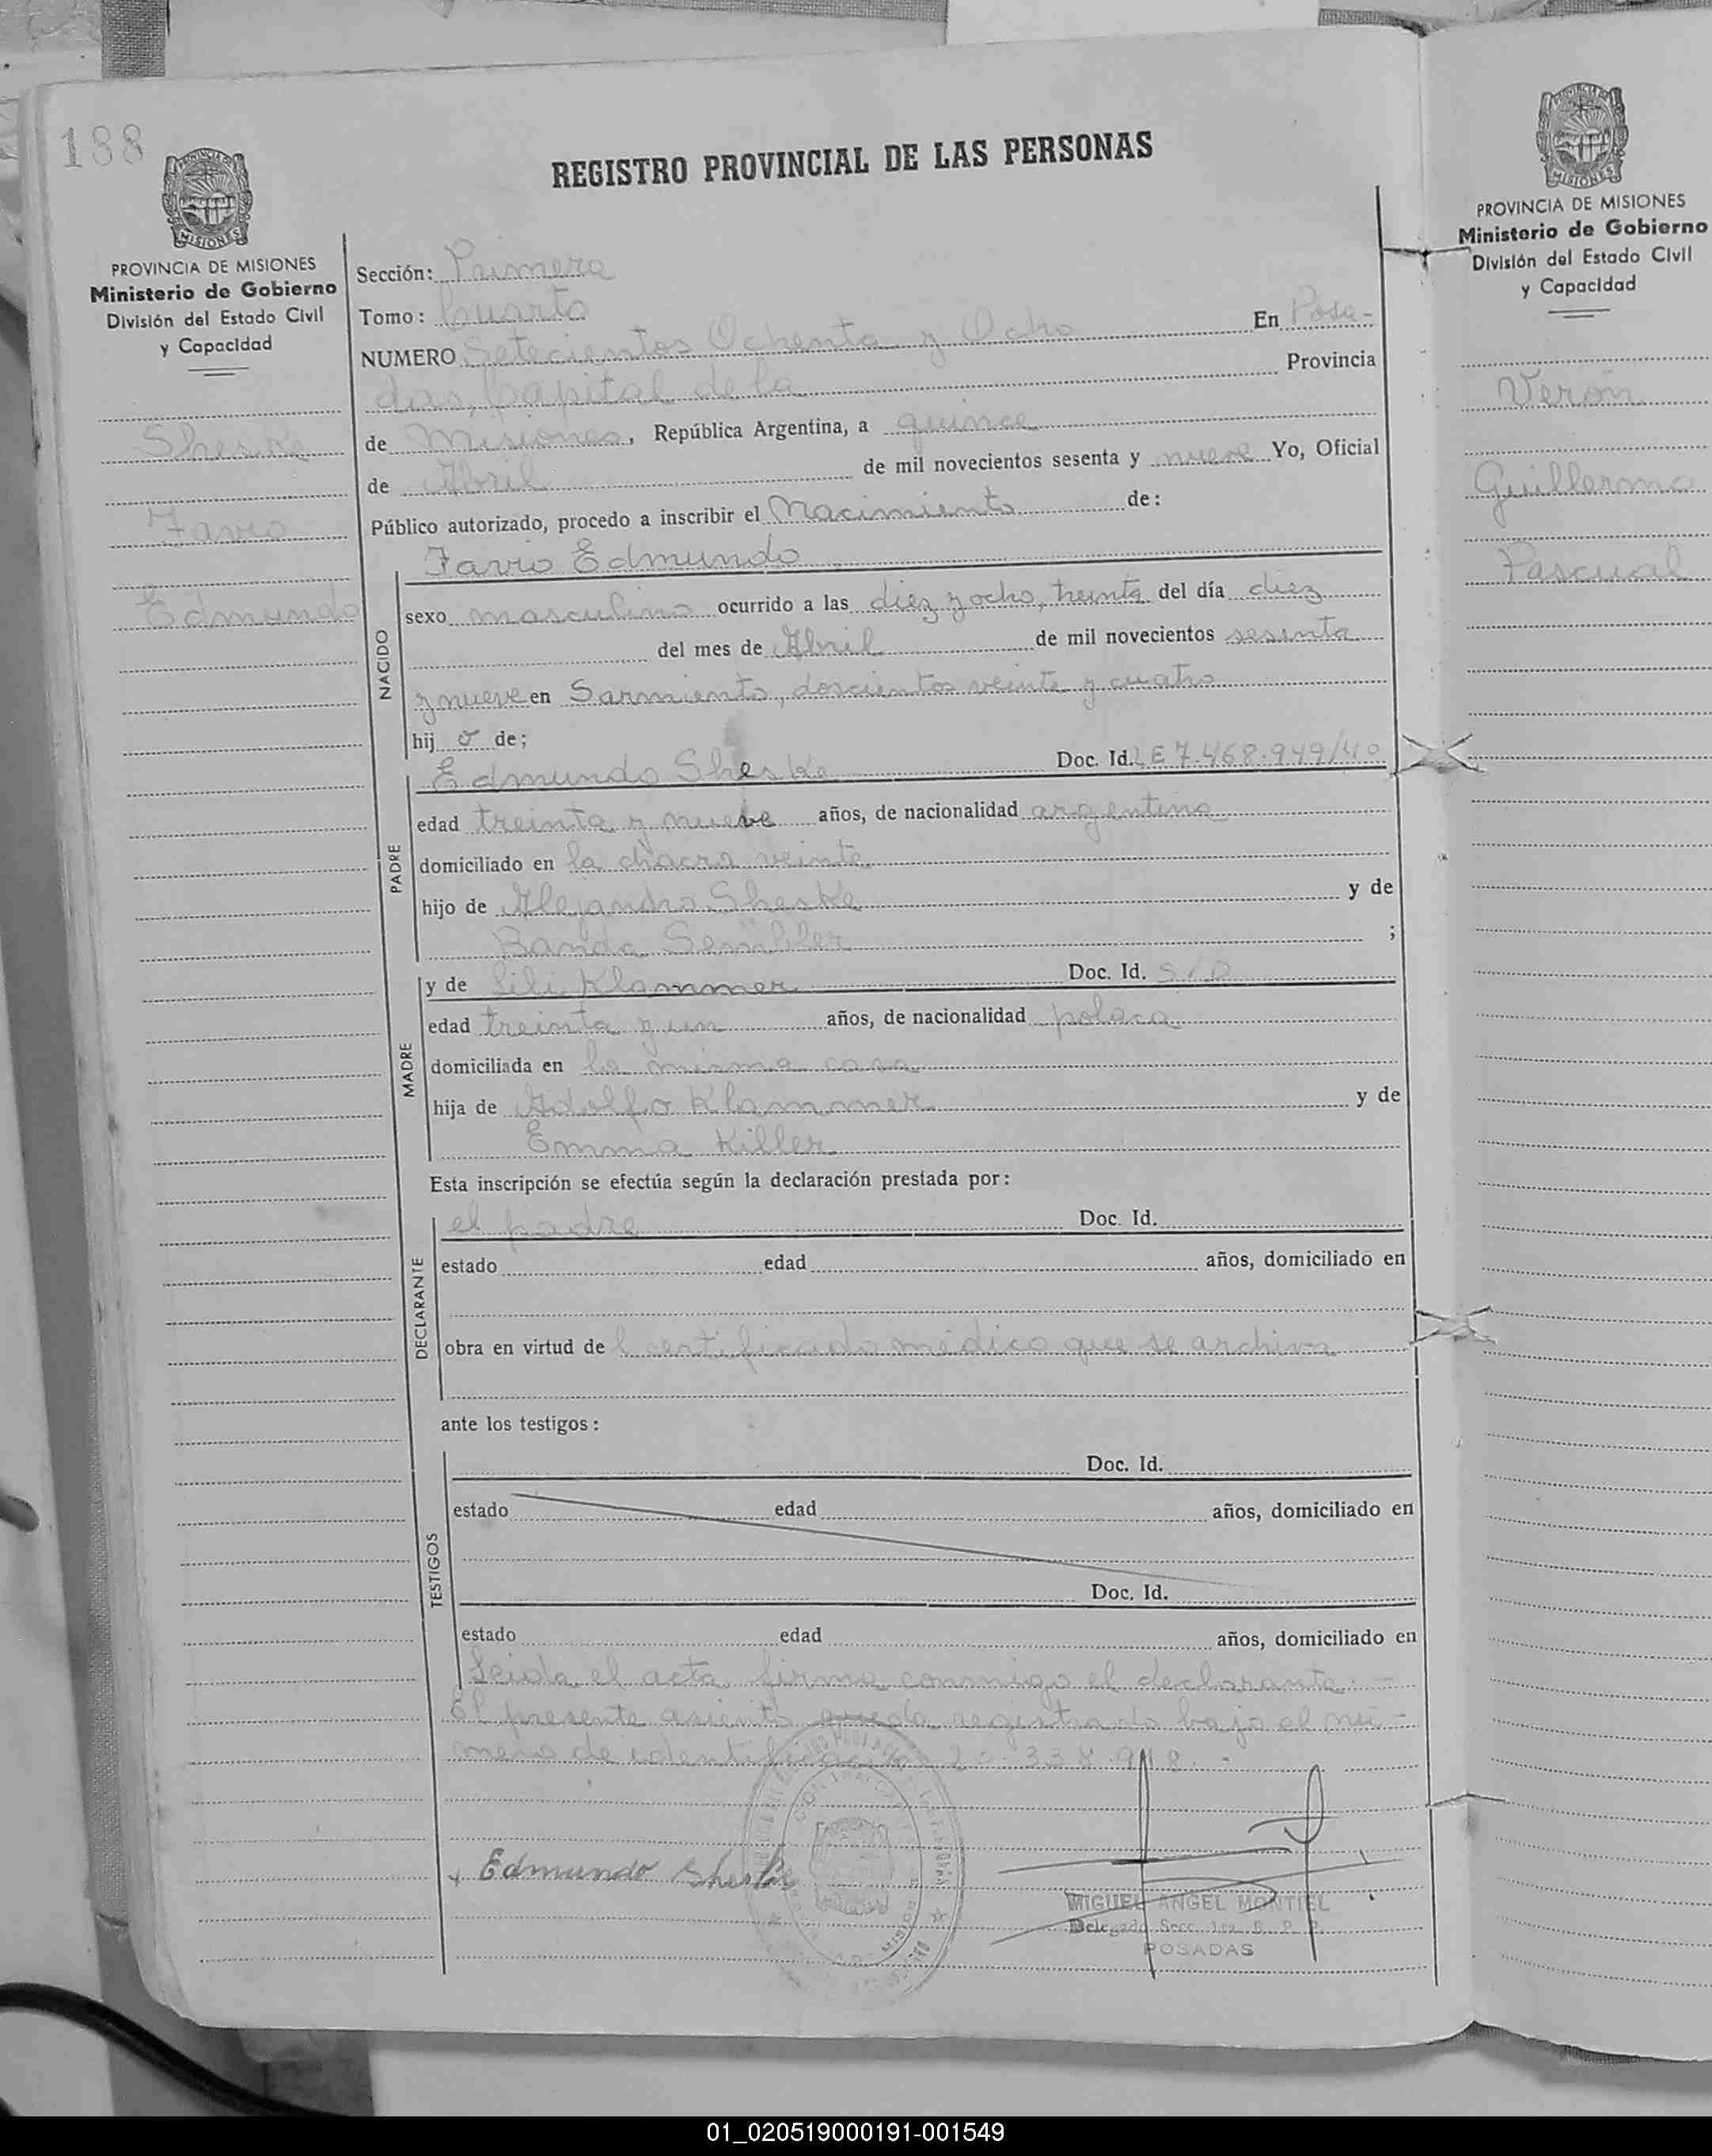 188
REGISTRO PROVINCIAL DE LAS PERSONAS
MISIONES
PROVINCIA DE MISIONES
Ministerio de Gobierno
División del Estado Civil
y Capacidad
Sheske
Favio
Edmundo
Sección: Primera
Tomo: Cuarto
NUMERO Setecientos Ochenta y Ocho En Posa-
das, Capital de la Provincia
de Misiones, República Argentina, a quince
de Abril de mil novecientos sesenta y nueve Yo, Oficial
Público autorizado, procedo a inscribir el Nacimiento de:
NACIDO
Favio Edmundo
sexo masculino ocurrido a las diez y ocho, treinta del día diez
del mes de Abril de mil novecientos sesenta
y nueve en Sarmiento, doscientos veinte y cuatro
hij o de;
PADRE
Edmundo Sheske Doc. Id. LE 7.468.949/40
edad treinta y nueve años, de nacionalidad argentina
domiciliado en la chacra veinte
hijo de Alejandro Sheske y de
Banda Sembler ;
MADRE
y de Lili Klammer Doc. Id. S/D
edad treinta y un años, de nacionalidad polaca
domiciliada en la misma casa
hija de Adolfo Klammer y de
Emma Killer
Esta inscripción se efectúa según la declaración prestada por:
DECLARANTE
el padre Doc. Id.
estado edad años, domiciliado en
obra en virtud de l certificado médico que se archiva
ante los testigos:
TESTIGOS
Doc. Id.
estado edad años, domiciliado en
Doc. Id.
estado edad años, domiciliado en
Leida el acta, firma conmigo el declarante.-
El presente asiento queda registrado bajo el nú-
mero de identificación 20.338.918.-
Edmundo Sheske
MIGUEL ANGEL MONTIEL
Delegado Secc. 1ra. R. P. P.
POSADAS
MISIONES
PROVINCIA DE MISIONES
Ministerio de Gobierno
División del Estado Civil
y Capacidad
Verón
Guillermo
Pascual
01_020519000191-001549